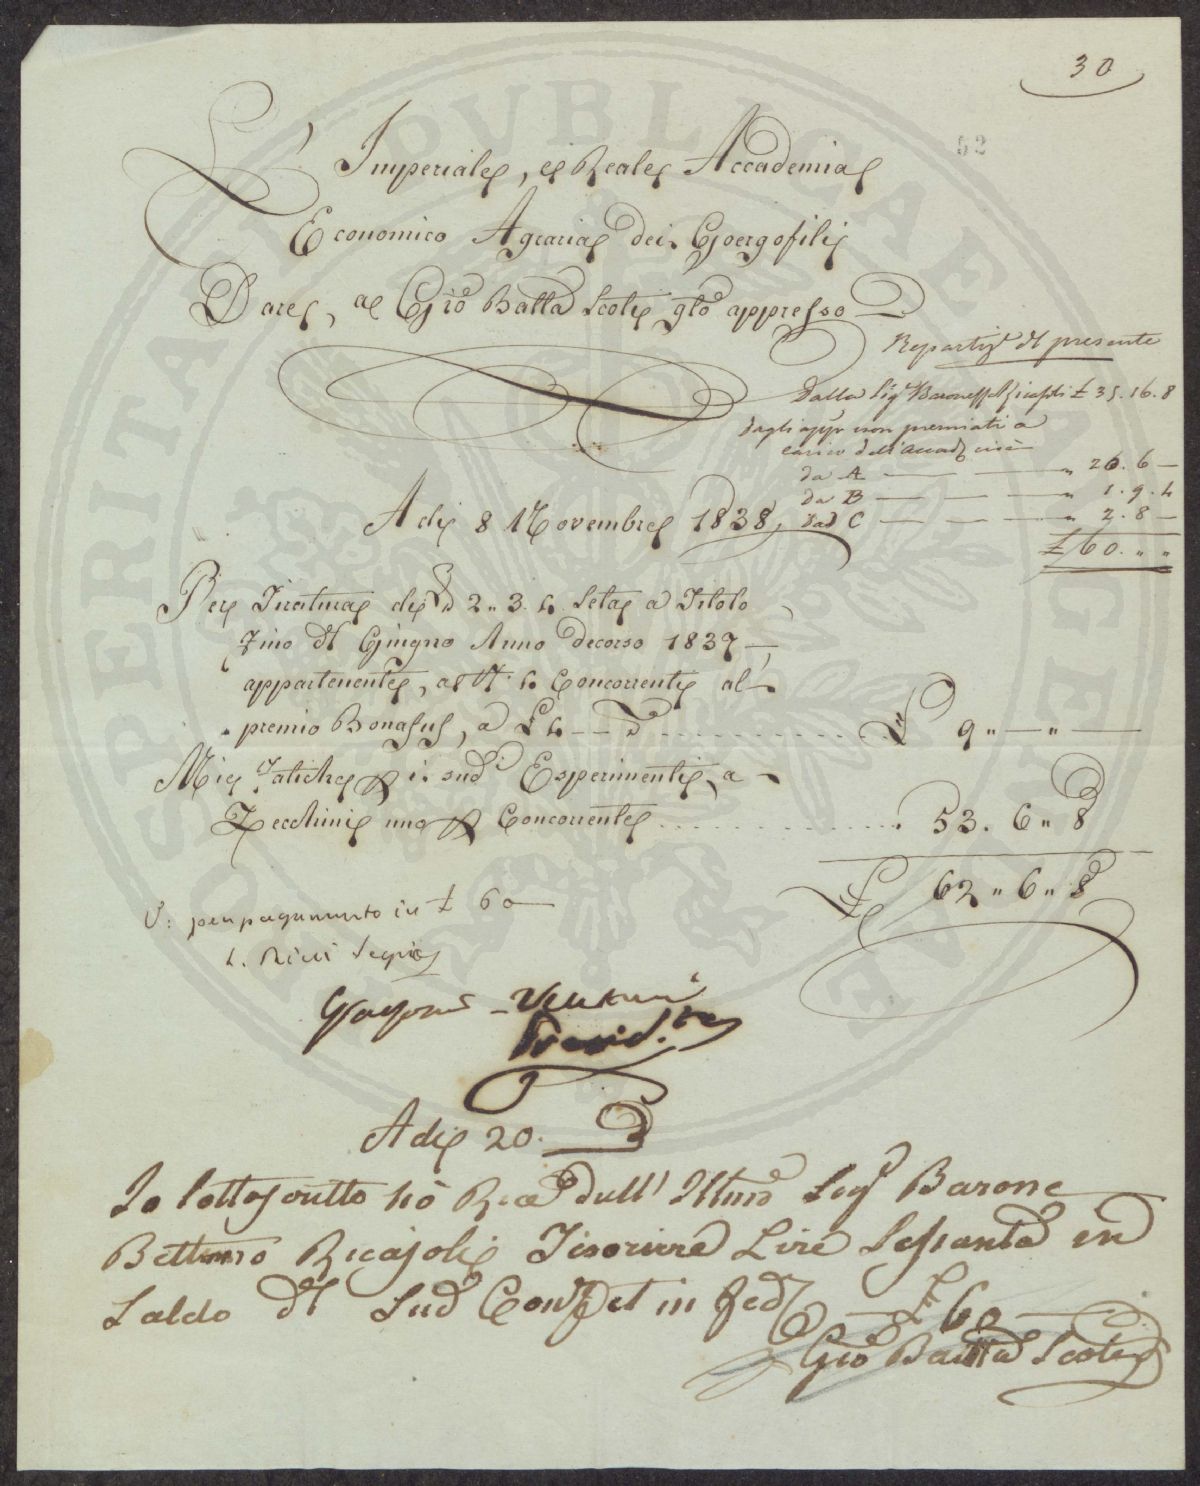 30
52
Imperiale, e Reale Accademia
Economico Agraria dei Goergofili
Dare, a Gio Batta Scoti qto appresso
Repartize dl presente
Dalla Sig Baronessa Ricasoli £ 35.16.8
dagli non premiati a
carico dell'Accad cioè
da A — — — „ 26. 6 —
da B — — — „ 1. 9. 4
dad C — — — „ 2. 8 —
£ 60. „ „
Adi 8 Novembre 1838,
Per Tiratura di 2„ 3. 4. Seta a Titolo
Fino dl Giugno Anno decorso 1837 —
appartenente, a 4 Concorrenti al
premio Bonafus, a £ 4 — — £ 9 „ — „ —
Mie Fatiche p i sudi Esperimenti, a
Zecchini uno p Concorrente 53. 6 „ 8
£ 62 „ 6 „ 8
V: per pagamento in £ 60
L. Ricci Segrio
Presid.te
Adi 20.
Io sottoscritto hò Rice dall' Illmo Sigr Barone
Bettino Ricasoli Tesoriere Lire Sessanta in
Saldo dl Sud Conto et in fede — £ 60 —
Gio Batta Scoti
PROSPERITATI PVBLICAE AVGENDAE